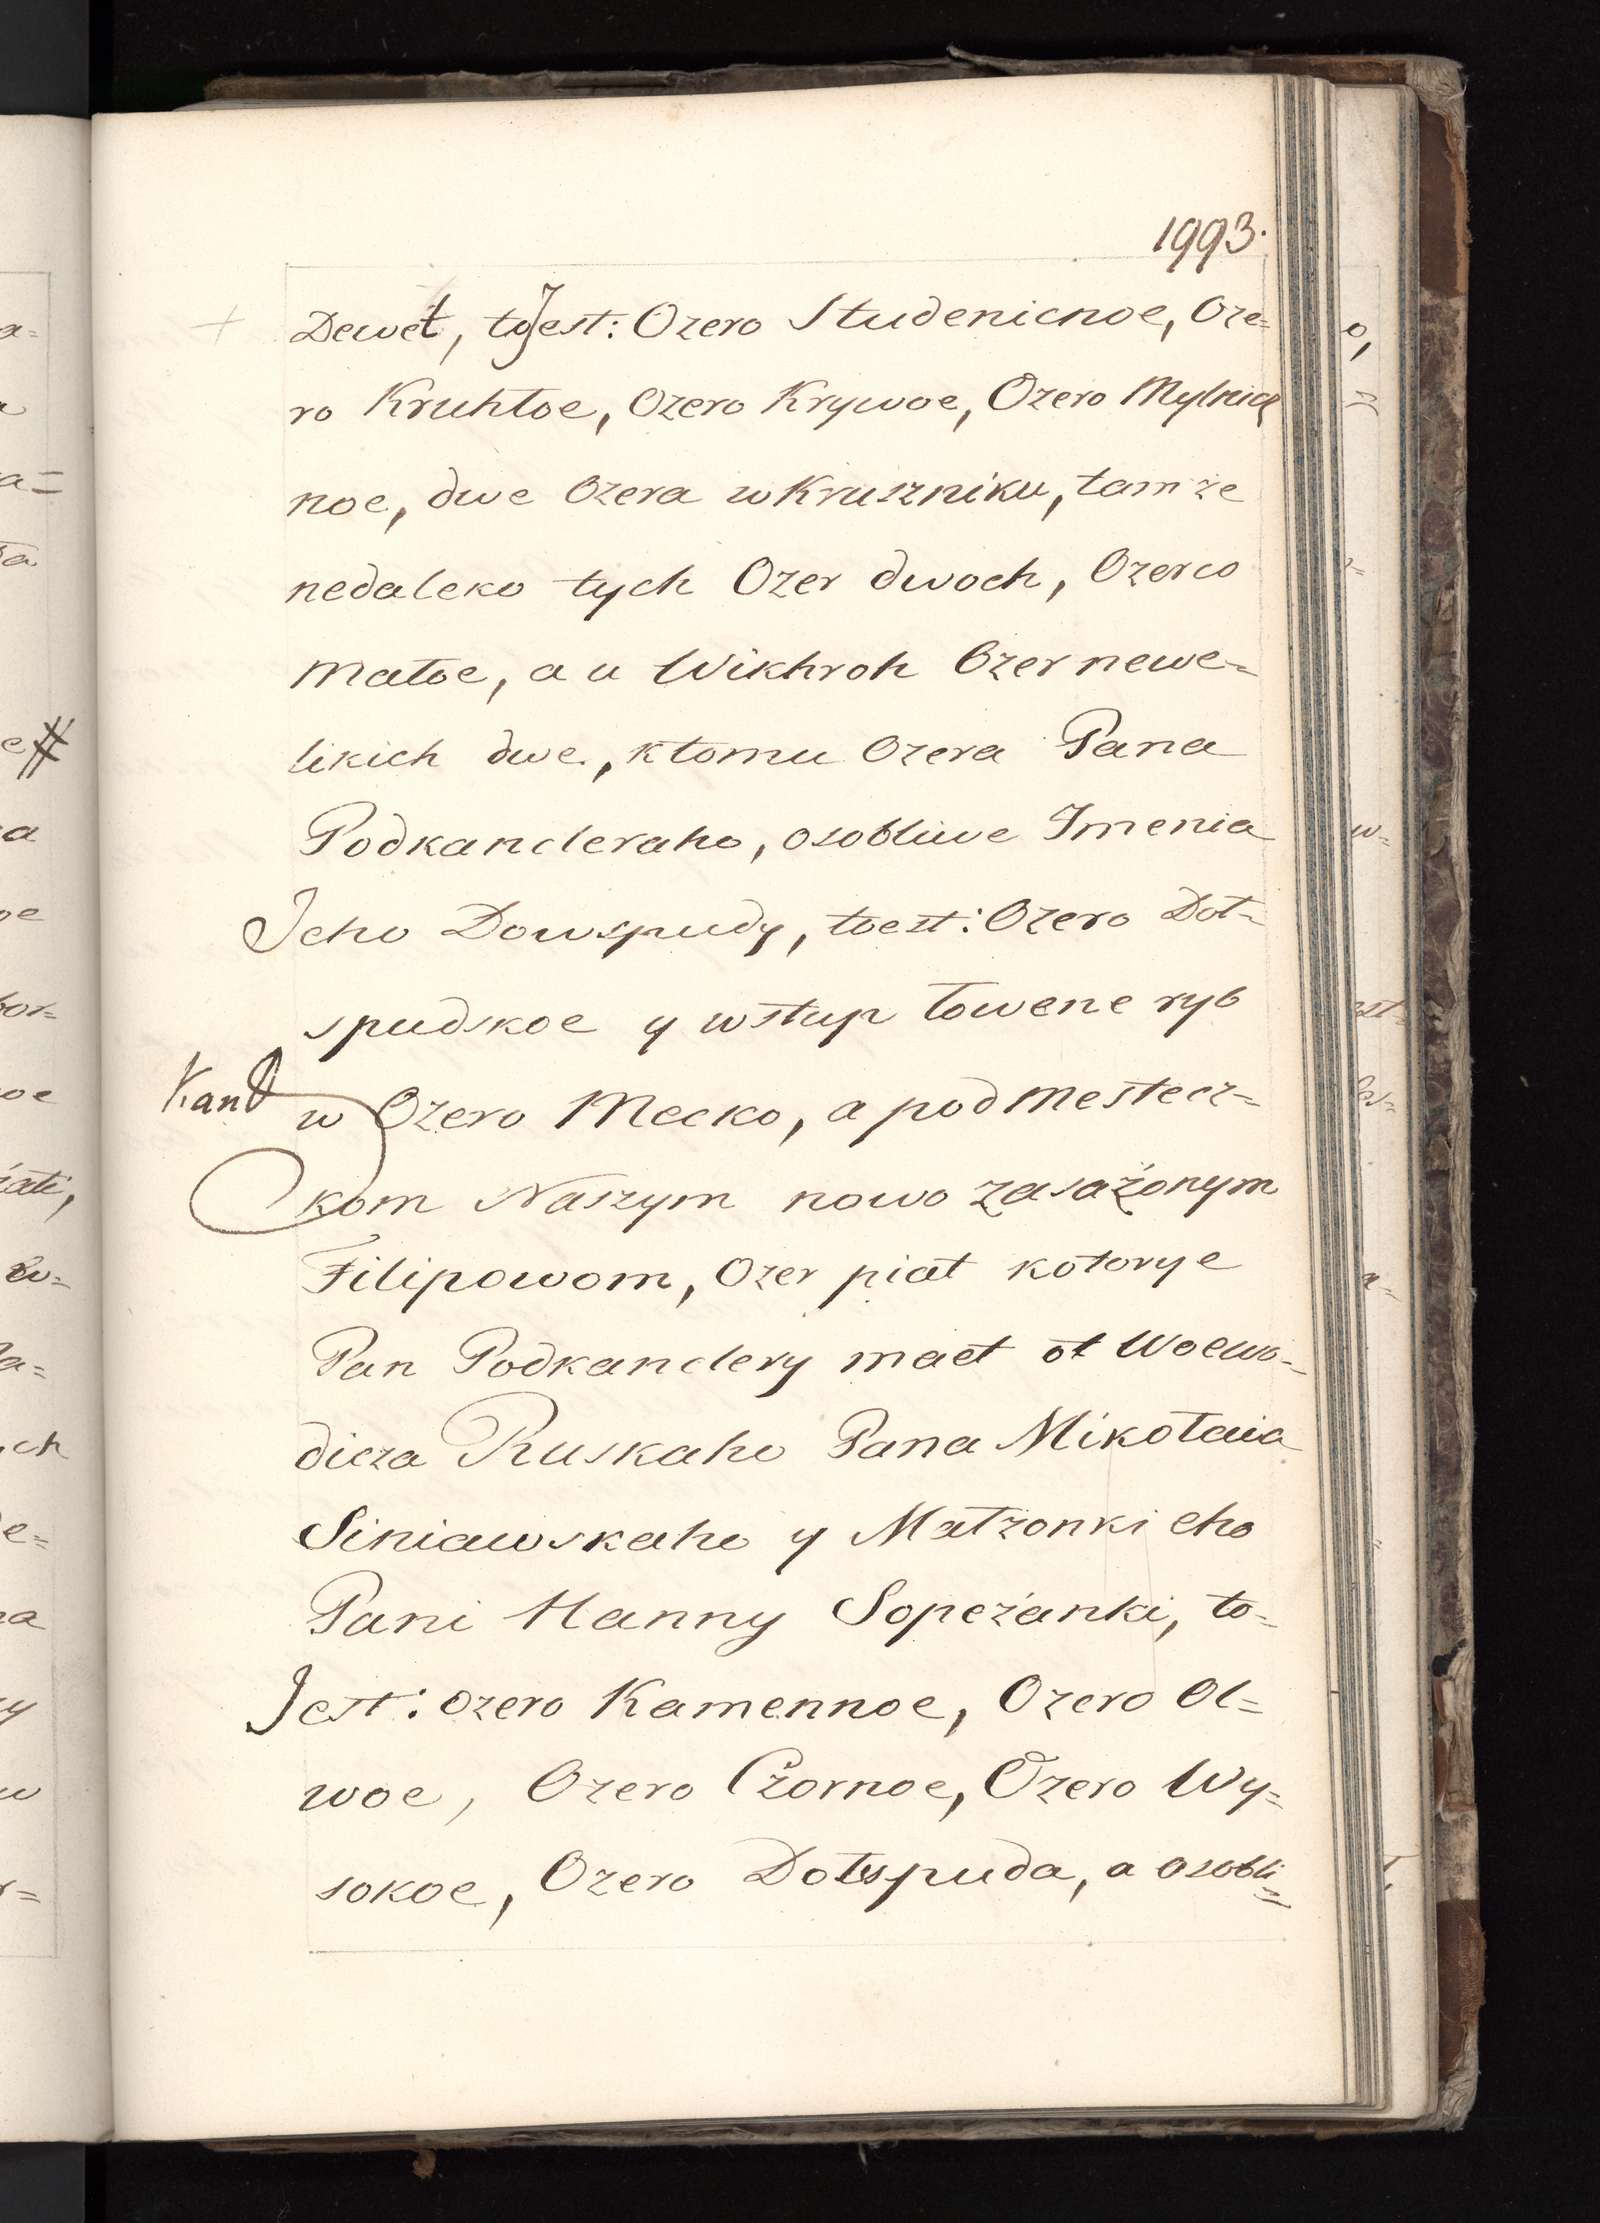 1993.
Dewet, toJest: Ozero Studenicnoe, Oze=
ro Kruhłoe, Ozero Krywoe, Ozero Mylnicz
noe, dwe Ozera w Kruszniku, tam że
nedaleko tych Ozer dwoch, Ozerco
małoe, a u Wikhroh Ozer newe=
likich dwe, ktomu Ozera Pana
Podkancleraho, osobliwe Imenia
Jeho Dowspudy, toest: Ozero Dot=
spudskoe y wstup łowene ryb
w Ozero Mecko, a pod mestecz=
kom Naszym nowo zasażonym
Filipowom, Ozer piat kotorye
Pan Podkanclery maet ot Woewo=
dicza Ruskaho Pana Mikołaia
Siniawskaho y Małżonki eho
Pani Hanny Sopeżanki, to=
Jest: ozero Kamennoe, Ozero Ol=
woe, Ozero Czornoe, Ozero Wy=
sokoe, Ozero Dotspuda, a osobli=